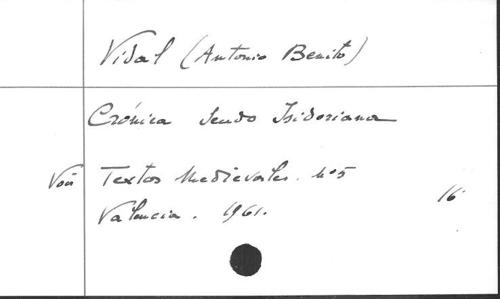 Vidal (Antonio Benito)
Crónica Seudo Isidoriana
Voir Textos Medievales. nº5
Valencia. 1961. 16